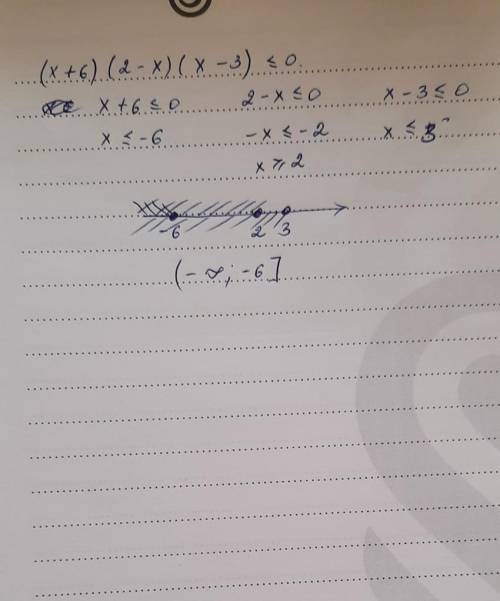 (x+6)(2-x)(x-3) ≤ 0.
x+6 ≤ 0 2-x ≤ 0 x-3 ≤ 0
x ≤ -6 -x ≤ -2 x ≤ 3
x ⩾ 2
-6 2 3
(-∞; -6]